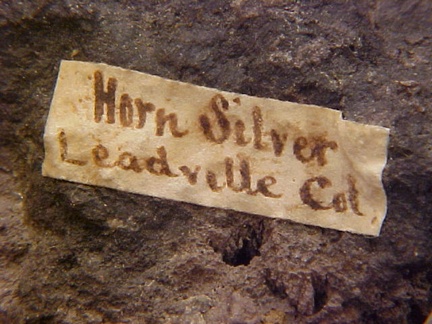 Horn Silver
Leadville Col.